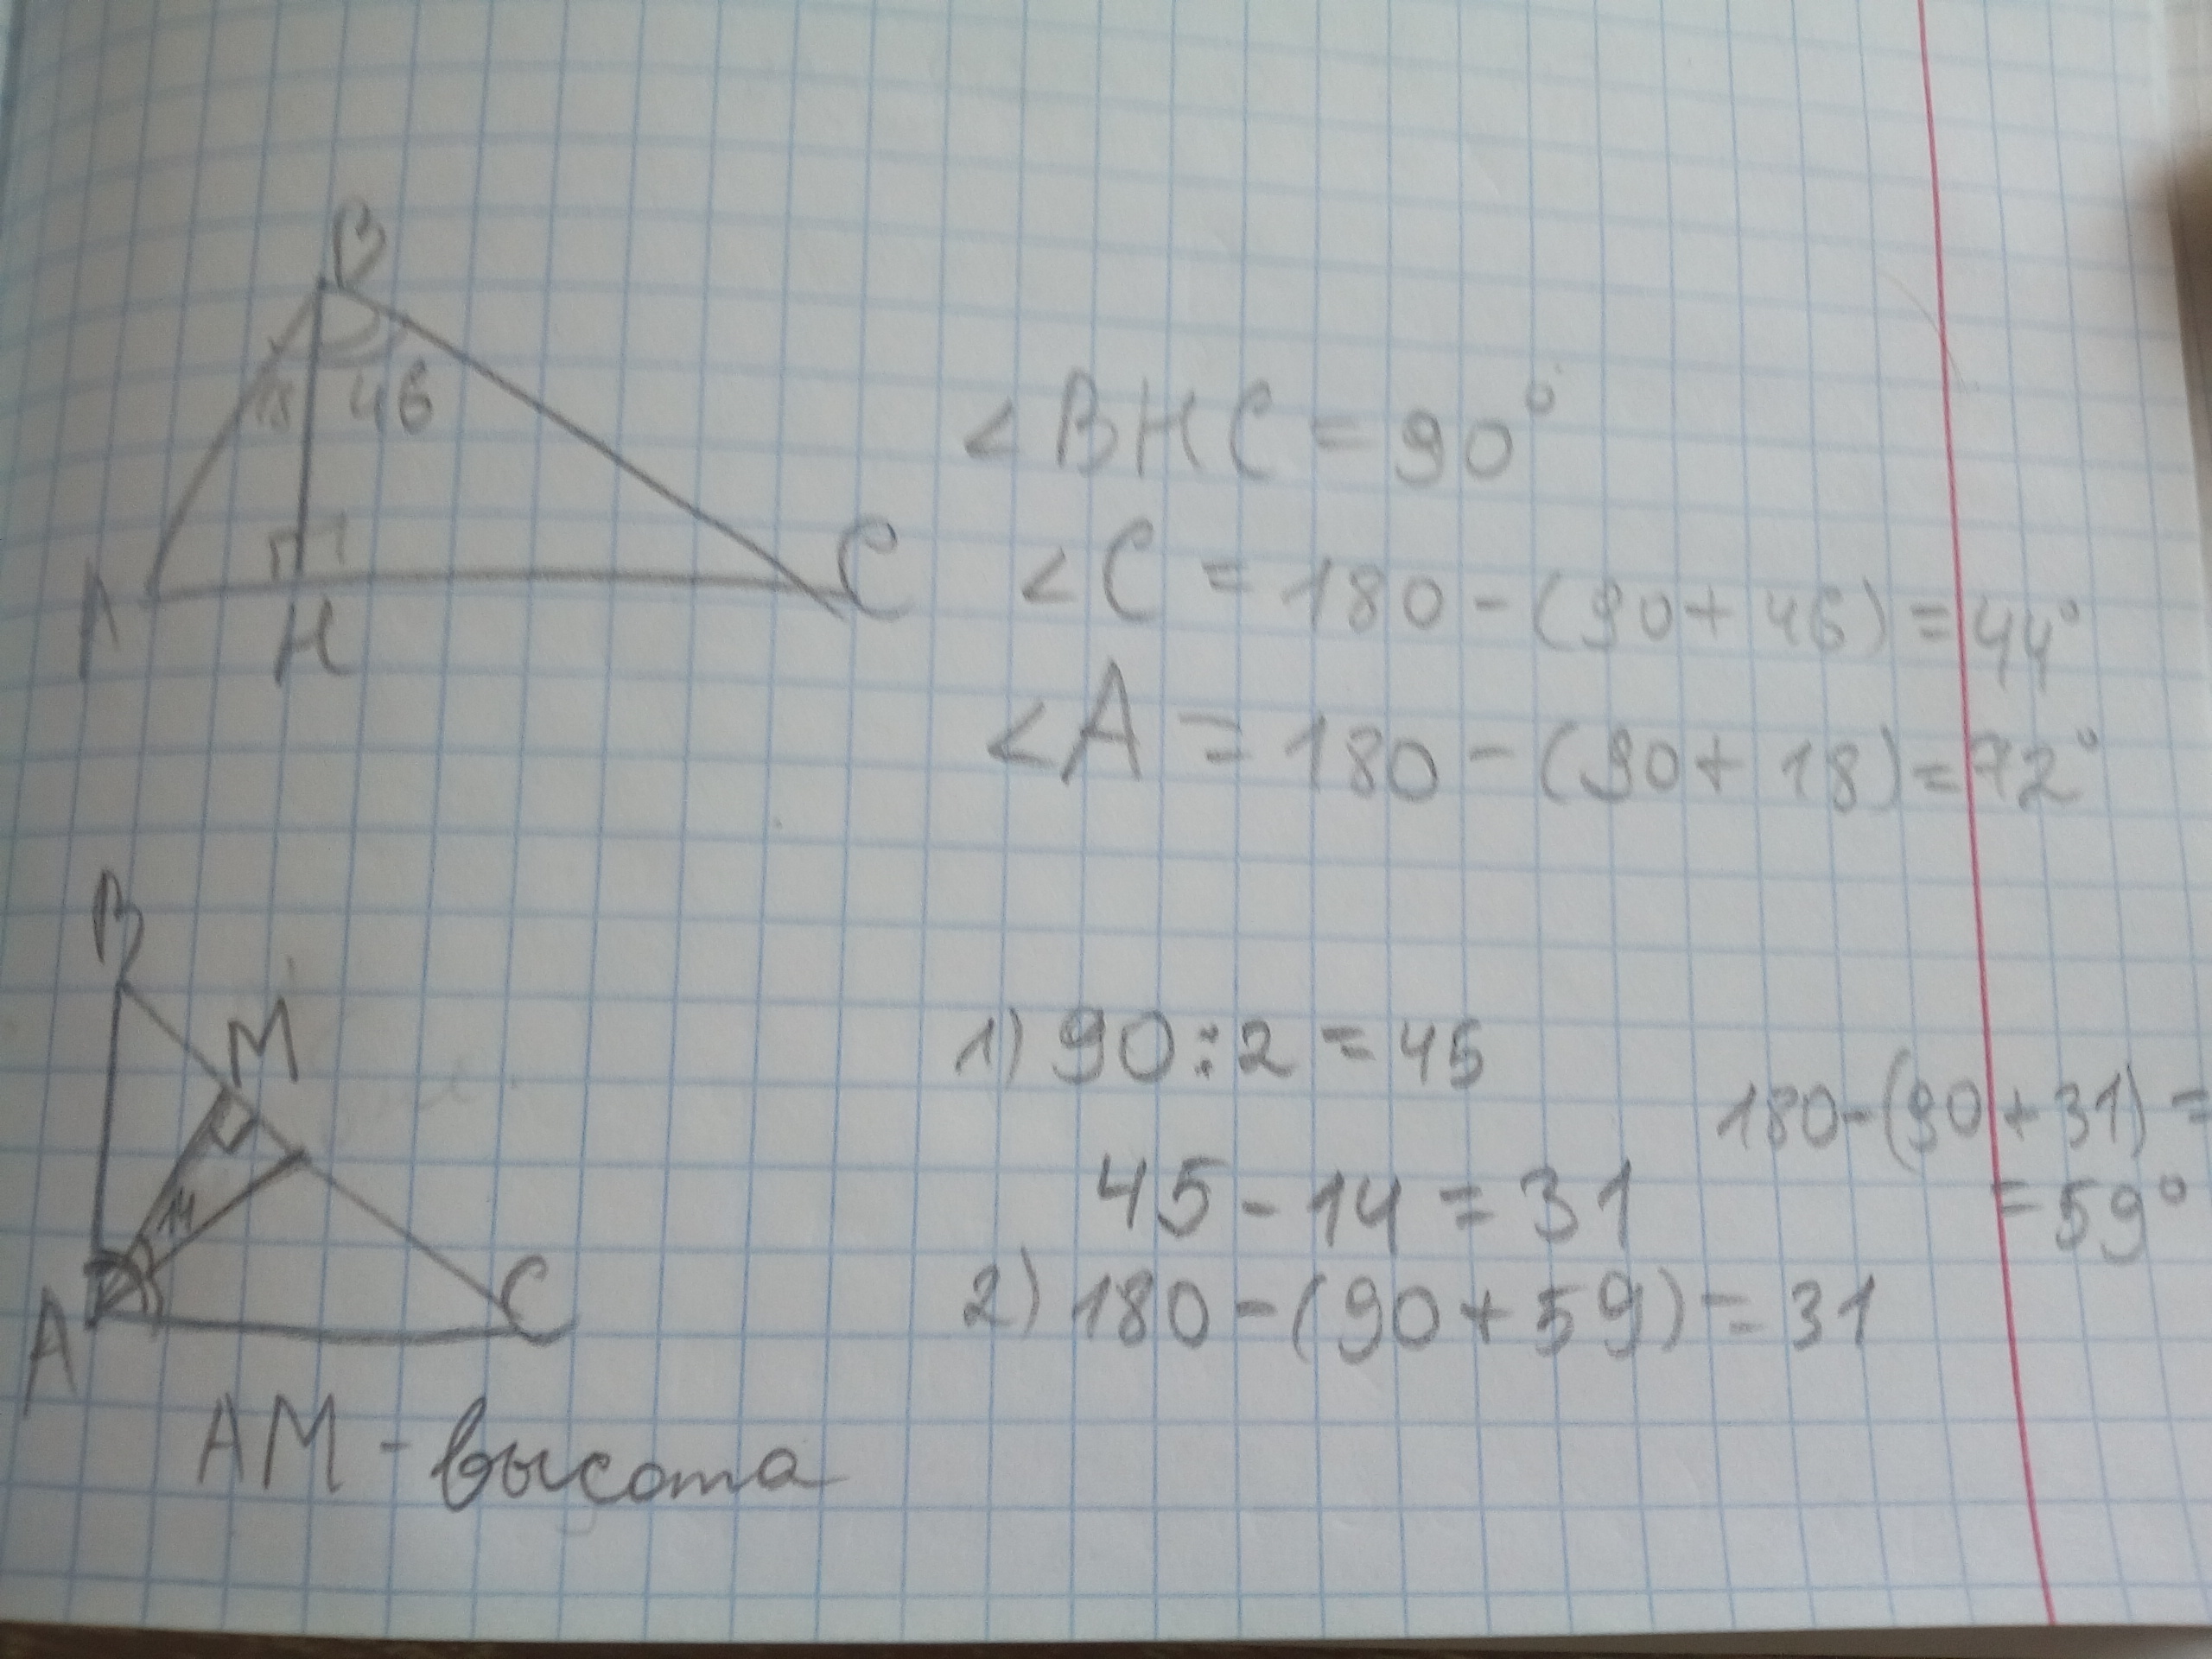 B
18 46
A H C
<BHC = 90°
<C = 180 - (90 + 46) = 44°
<A = 180 - (90 + 18) = 72°
B
M
14
A C
AM - высота
1) 90 : 2 = 45
45 - 14 = 31
180 - (90 + 31) =
= 59°
2) 180 - (90 + 59) = 31